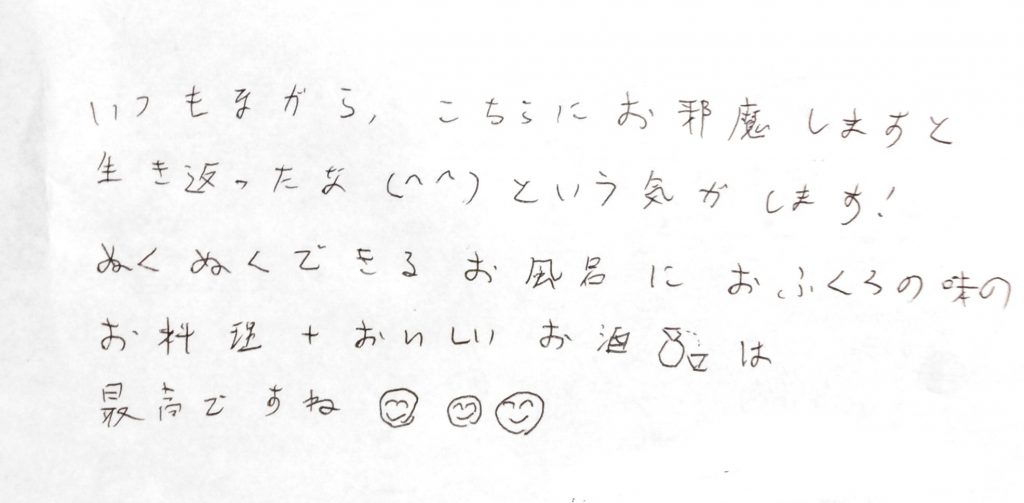 いつもながら、こちらにお邪魔しますと
生き返ったな(^^)という気がします!
ぬくぬくできるお風呂におふくろの味の
お料理+おいしいお酒は
最高ですね